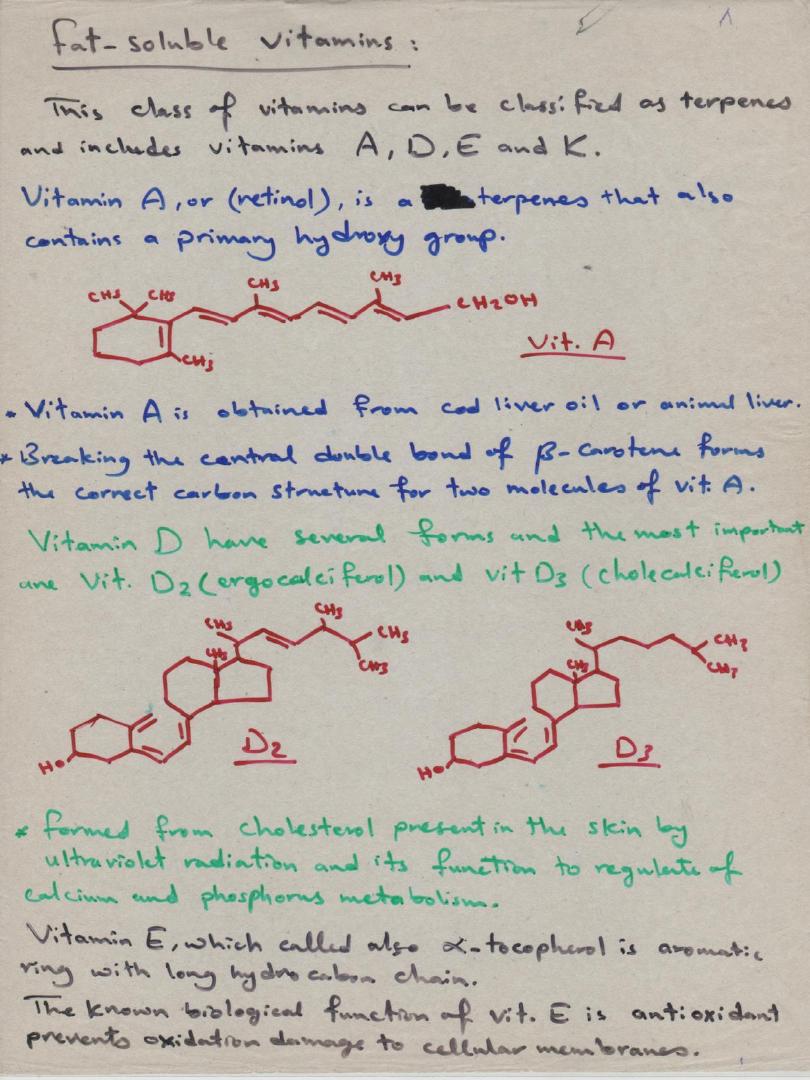 Fat-soluble vitamins :
This class of vitamins can be classified as terpenes
and includes vitamins A, D, E and K.
Vitamin A, or (retinol), is a terpenes that also
contains a primary hydroxy group.
CH3 CH3 CH3 CH3 CH2OH
CH3
Vit. A
* Vitamin A is obtained from cod liver oil or animal liver.
* Breaking the central double bond of β-carotene forms
the correct carbon structure for two molecules of vit. A.
Vitamin D have several forms and the most important
are Vit. D2 (ergocalciferol) and vit D3 (cholecalciferol)
CH3 CH3 CH3 CH3 CH3
HO D2
CH3 CH3 CH3 CH3
HO D3
* formed from cholesterol present in the skin by
ultraviolet radiation and its function to regulate of
calcium and phosphorus metabolism.
Vitamin E, which called also α-tocopherol is aromatic
ring with long hydrocabon chain.
The known biological function of vit. E is antioxidant
prevents oxidation damage to cellular membranes.